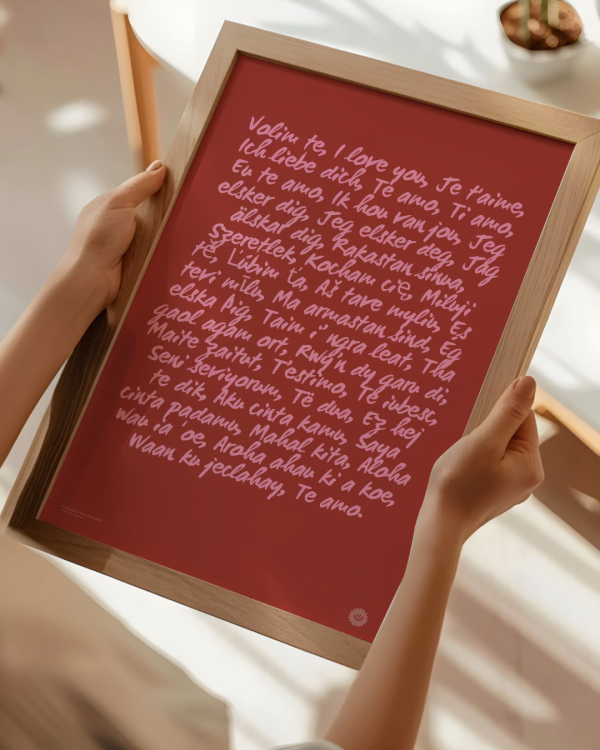 Volim te, I love you, Je t'aime,
Ich liebe dich, Te amo, Ti amo,
Eu te amo, Ik hou van jou, Jeg
elsker dig, Jeg elsker deg, Jag
älskar dig, Rakastan sinua,
Szeretlek, Kocham cię, Miluji
tě, Ľúbim ťa, Aš tave myliu, Es
tevi mīlu, Ma armastan sind, Ég
elska þig, Taim i ngra leat, Tha
gaol agam ort, Rwy'n dy garu di,
Maite zaitut, T'estimo, Te iubesc,
Seni seviyorum, Të dua, Ez hej
te dik, Aku cinta kamu, Saya
cinta padamu, Mahal kita, Aloha
wau iā 'oe, Aroha ahau ki a koe,
Waan ku jeclahay, Te amo.